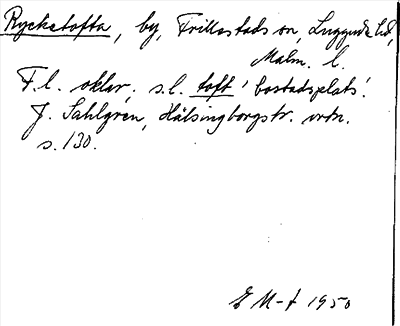 Ryckstofta, by, Frillestads sn, Luggude hd,
Malm. l.
F.l. oklar; s.l. toft 'bostadsplats'.
J. Sahlgren, Hälsingborgstr. ortn.
s. 130.
E M-f 1950